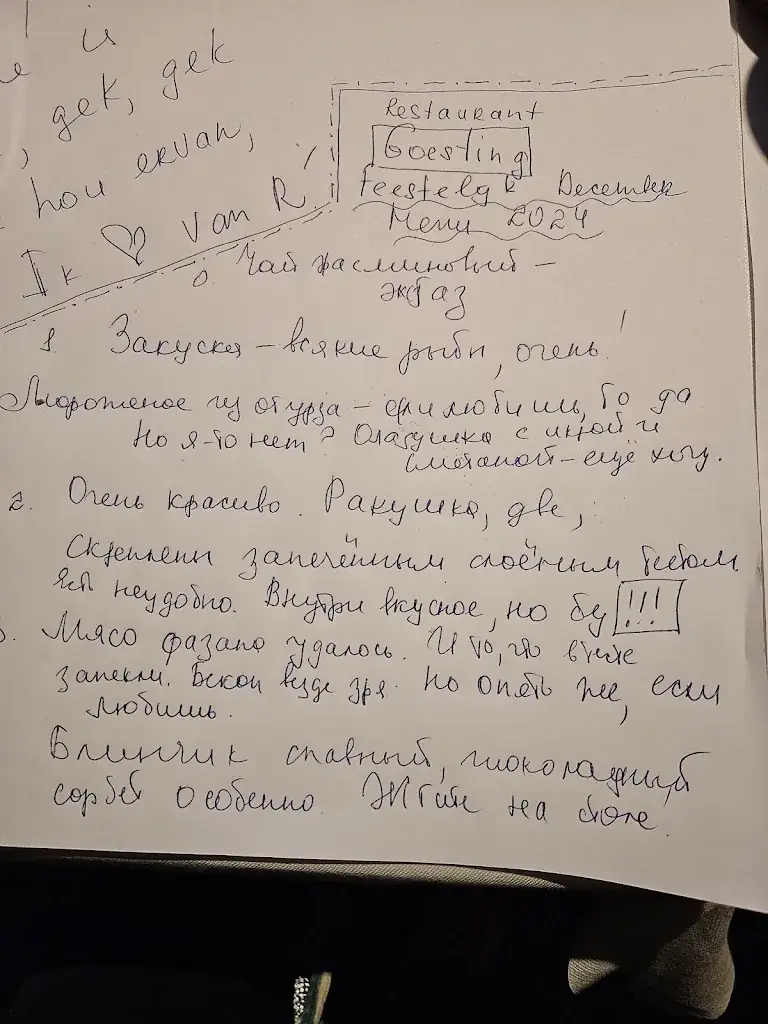 is
, gek, gek
hou ervan,
Ik van R!
Restaurant
Goesting
Feestelijk December
Menu 2024
0. Чай жасминовый –
экстаз
1. Закуска – всякие рыбы, очень!
Мороженое из огурца – если любишь, то да
Но я-то нет? Оладушка с икрой и
сметаной – ещё хочу.
2. Очень красиво. Ракушка, две,
скреплены запечённым слоёным тестом
Есть неудобно. Внутри вкусное, но бу !!!
3. Мясо фазана удалось. И то, что в нём
запекли. Бекон везде зря. Но опять же, если
любишь.
Блинчик славный, шоколадный
сорбет особенно. Жгли на столе.